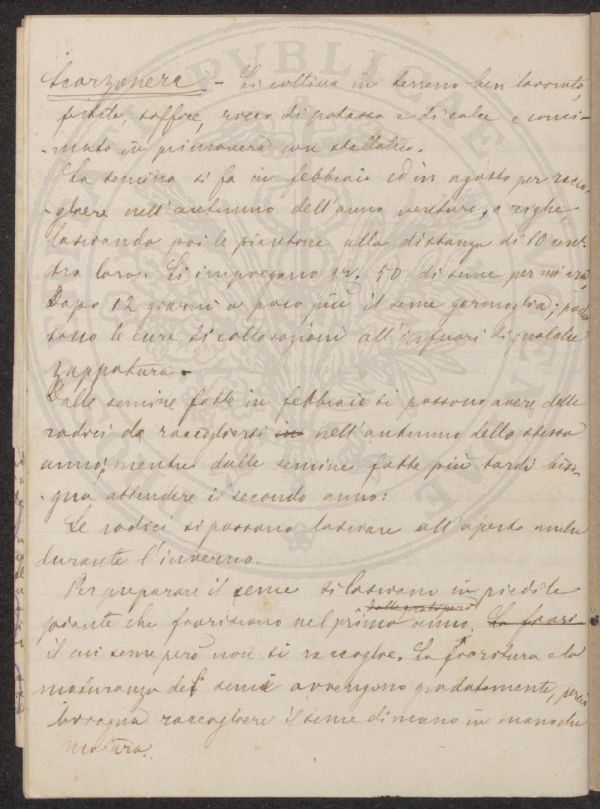 Scorzonera - Si coltiva in terreno ben lavorato,
fertile, soffice, ricco di potassa e di calce e conci-
-mato in primavera con stallatico.
La semina si fa in febbraio ed in agosto per racco-
-gliere nell'autunno dell'anno venturo, a righe,
lasciando poi le piantine alla distanza di 10 cent.
tra loro. Si impiegano gr. 50 di seme per m² 
Dopo 12 giorni o poco più il seme germoglia; poche
sono le cure di coltivazione all'infuori di qualche
zappatura.
Dalle semine fatte in febbraio si possono avere delle
radici da raccogliersi in nell'autunno dello stesso
anno; mentre dalle semine fatte più tardi biso-
-gna attendere il secondo anno:
Le radici si possono lasciare all'aperto anche
durante l'inverno.
Per preparare il seme si lasciano in piedi le
piante che fioriscono nel primo anno. La fiori
il cui seme però non si raccoglie. La fioritura e la
maturanza dei semi avvengono gradatamente, perciò
bisogna raccogliere il seme di mano in mano che
matura.